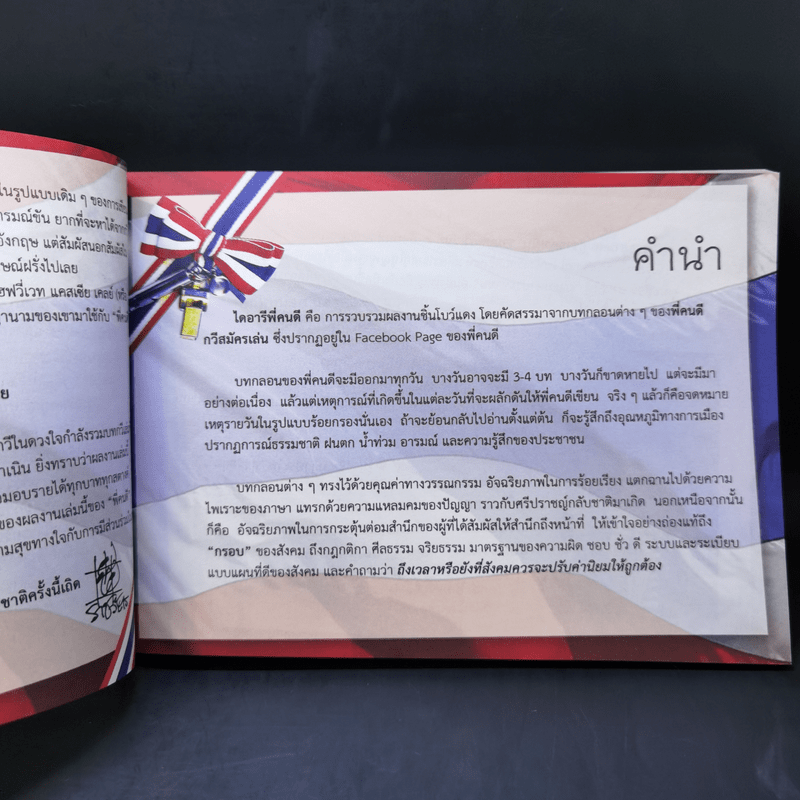 ในรูปแบบเดิม ๆ ของการ
ารมณ์ขัน ยากที่จะหาได้จาก
อังกฤษ แต่สัมผัสนอกสัมผัส
ษณ์ฝรั่งไปเลย
ฮฟวี่เวท แคสเซีย เคลย์
านามของเขามาใช้กับ "พี่คนดี"
ย
าวีในดวงใจกำลังรวมบทกวี
าเนิน ยิ่งทราบว่าผลงานเล่มนี้
ามอบรายได้ทุกบาททุกสตางค์
ของผลงานเล่มนี้ของ "พี่คนดี"
ามสุขทางใจกับการมีส่วนร่วม
ชาติครั้งนี้เถิด
คำนำ
ไดอารีพี่คนดี คือ การรวบรวมผลงานชิ้นโบว์แดง โดยคัดสรรมาจากบทกลอนต่าง ๆ ของพี่คนดี
กวีสมัครเล่น ซึ่งปรากฏอยู่ใน Facebook Page ของพี่คนดี
บทกลอนของพี่คนดีจะมีออกมาทุกวัน บางวันอาจจะมี 3-4 บท บางวันก็ขาดหายไป แต่จะมีมา
อย่างต่อเนื่อง แล้วแต่เหตุการณ์ที่เกิดขึ้นในแต่ละวันที่จะผลักดันให้พี่คนดีเขียน จริง ๆ แล้วก็คือจดหมาย
เหตุรายวันในรูปแบบร้อยกรองนั่นเอง ถ้าจะย้อนกลับไปอ่านตั้งแต่ต้น ก็จะรู้สึกถึงอุณหภูมิทางการเมือง
ปรากฏการณ์ธรรมชาติ ฝนตก น้ำท่วม อารมณ์ และความรู้สึกของประชาชน
บทกลอนต่าง ๆ ทรงไว้ด้วยคุณค่าทางวรรณกรรม อัจฉริยภาพในการร้อยเรียง แตกฉานไปด้วยความ
ไพเราะของภาษา แทรกด้วยความแหลมคมของปัญญา ราวกับศรีปราชญ์กลับชาติมาเกิด นอกเหนือจากนั้น
ก็คือ อัจฉริยภาพในการกระตุ้นต่อมสำนึกของผู้ที่ได้สัมผัสให้สำนึกถึงหน้าที่ ให้เข้าใจอย่างถ่องแท้ถึง
"กรอบ" ของสังคม ถึงกฎกติกา ศีลธรรม จริยธรรม มาตรฐานของความผิด ชอบ ชั่ว ดี ระบบและระเบียบ
แบบแผนที่ดีของสังคม และคำถามว่า ถึงเวลาหรือยังที่สังคมควรจะปรับค่านิยมให้ถูกต้อง